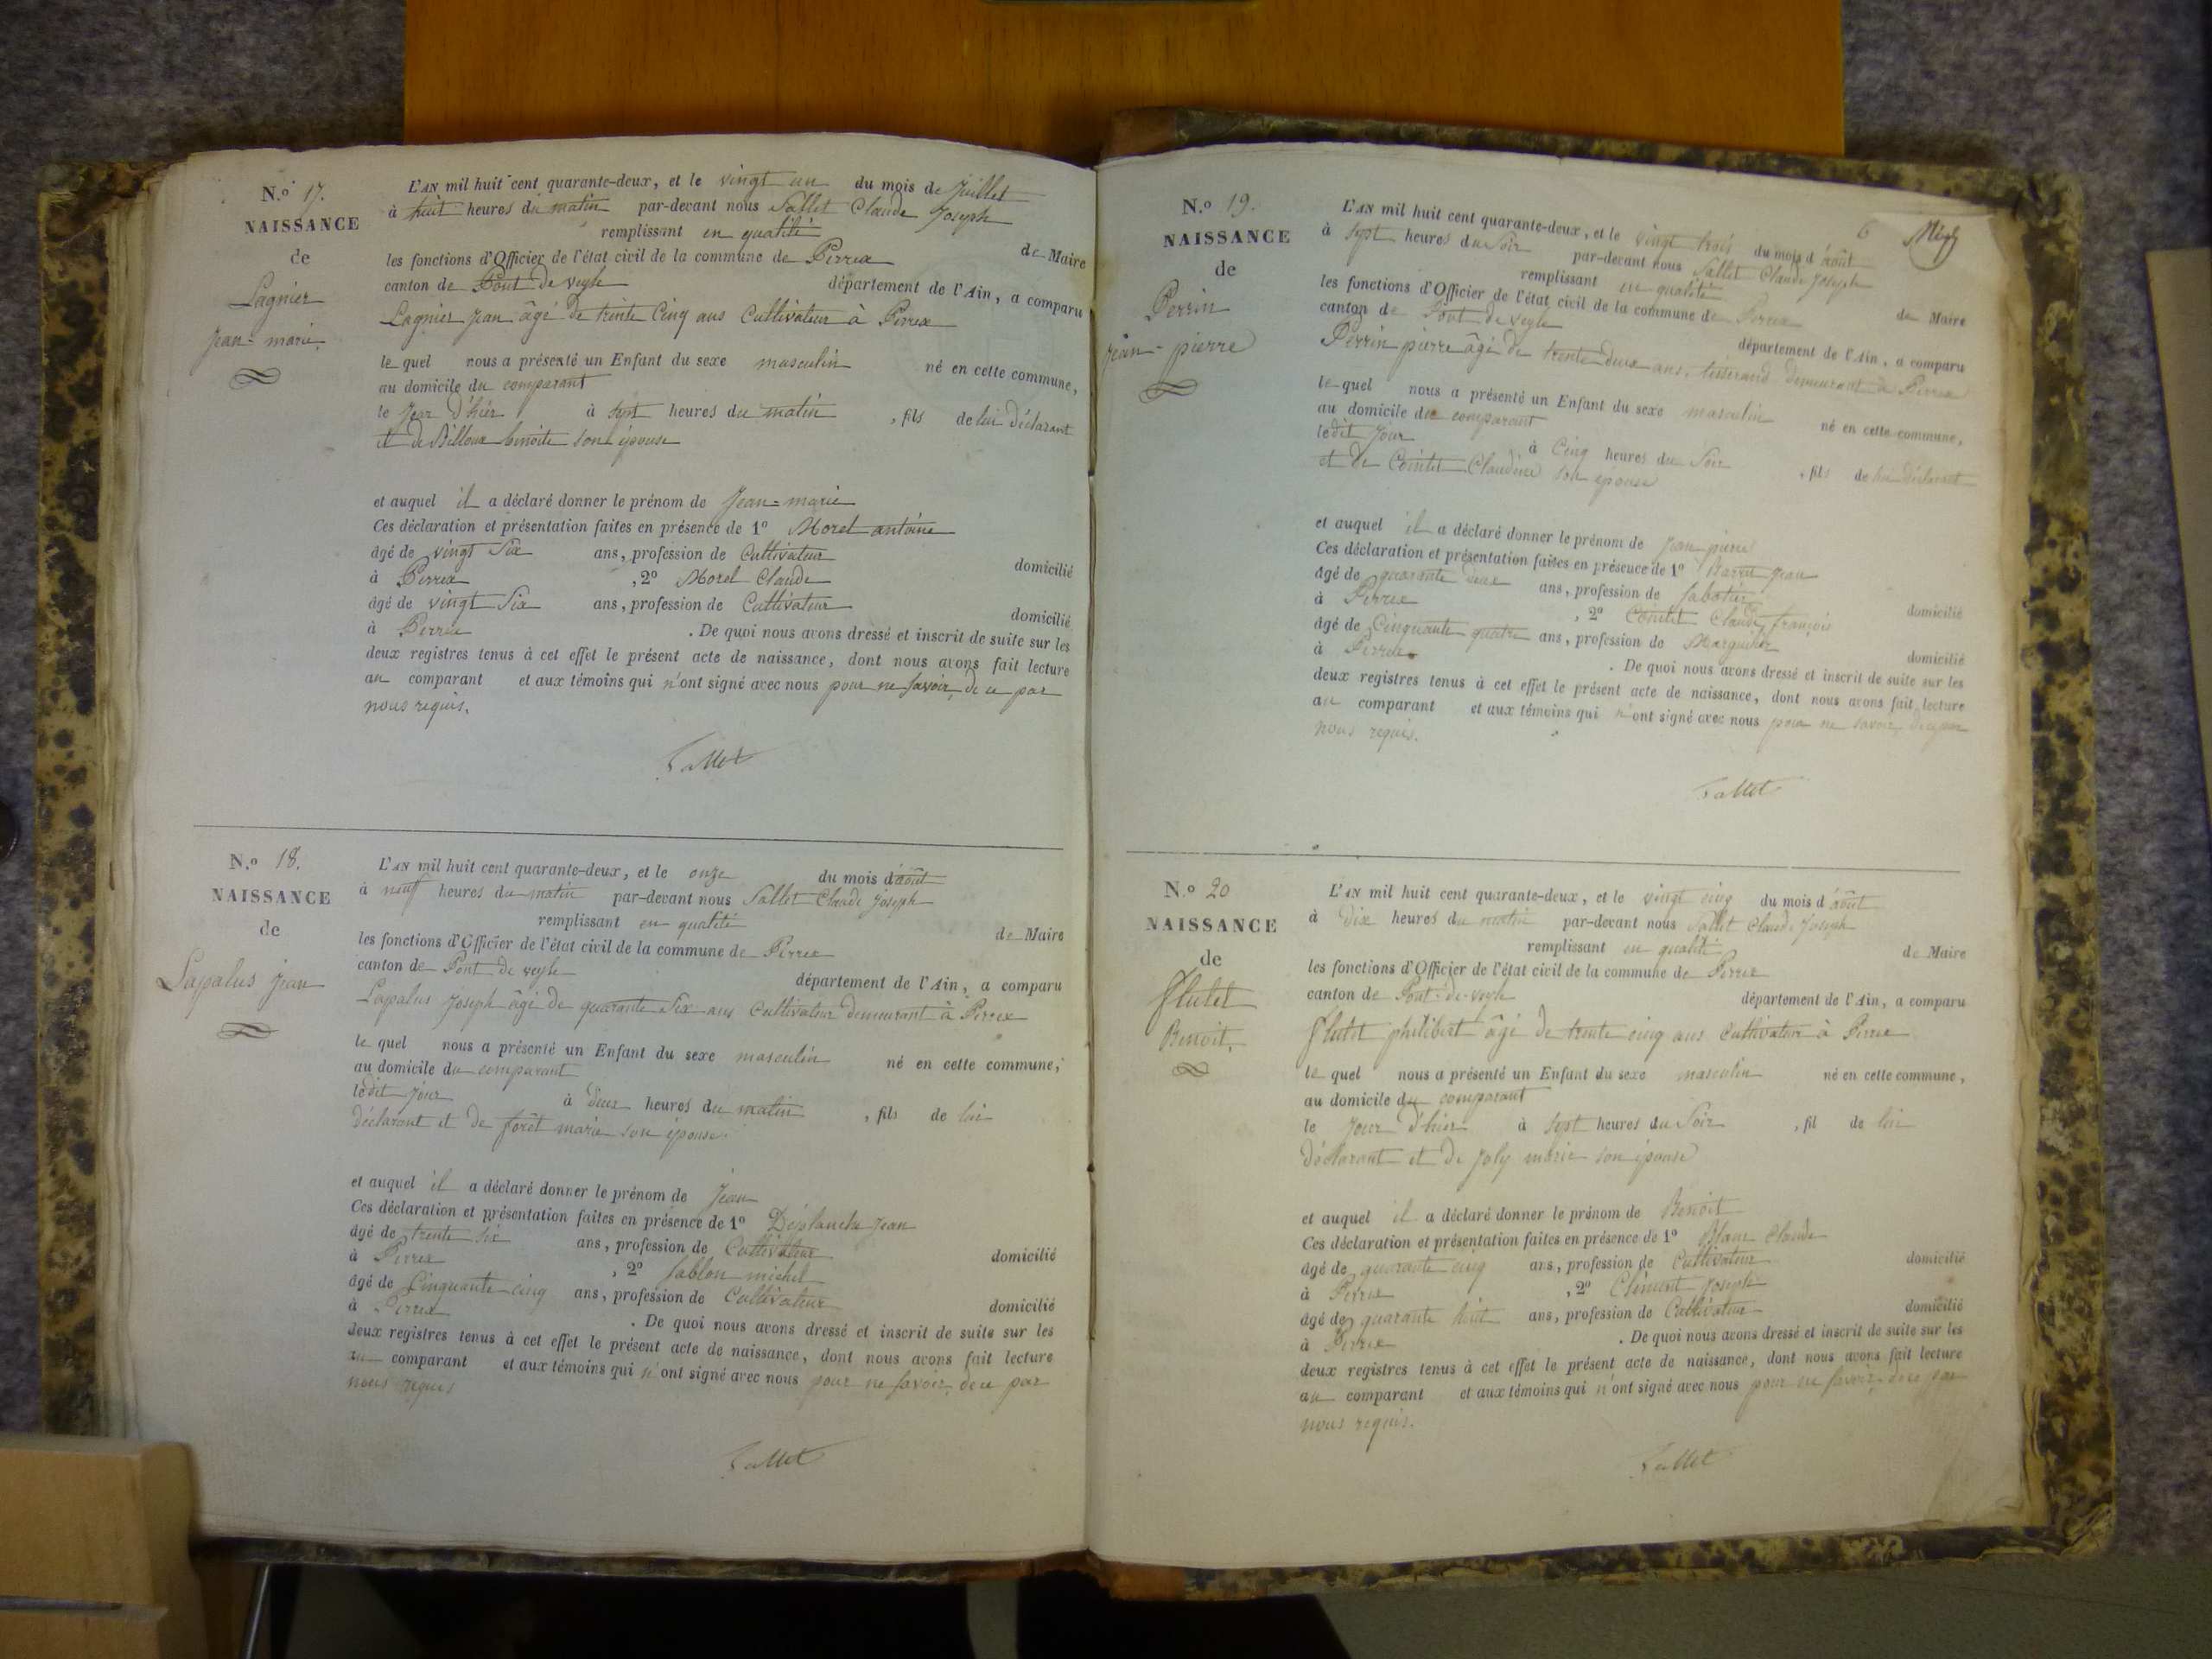 N.o 17.
NAISSANCE
de
Lagnier
Jean-marie.
L'AN mil huit cent quarante-deux, et le vingt un du mois de Juillet
à huit heures du matin par-devant nous Sallet Claude Joseph
remplissant en qualité de Maire
les fonctions d'Officier de l'état civil de la commune de Perrex
canton de Pont de veyle département de l'Ain, a comparu
Lagnier Jean âgé de trente Cinq ans Cultivateur à Perrex
le quel nous a présenté un Enfant du sexe masculin né en cette commune,
au domicile du comparant
le Jour d'hier à sept heures du matin, fils de lui déclarant
et de Billoux benoite son épouse
et auquel il a déclaré donner le prénom de Jean-marie
Ces déclaration et présentation faites en présence de 1o Morel antoine
âgé de vingt Six ans, profession de Cultivateur domicilié
à Perrex, 2o Morel Claude
âgé de vingt Six ans, profession de Cultivateur domicilié
à Perrex. De quoi nous avons dressé et inscrit de suite sur les
deux registres tenus à cet effet le présent acte de naissance, dont nous avons fait lecture
au comparant et aux témoins qui n'ont signé avec nous pour ne savoir, de ce par
nous requis.
Sallet
N.o 18.
NAISSANCE
de
Lapalus Jean
L'AN mil huit cent quarante-deux, et le onze du mois d'août
à neuf heures du matin par-devant nous Sallet Claude Joseph
remplissant en qualité de Maire
les fonctions d'Officier de l'état civil de la commune de Perrex
canton de Pont de veyle département de l'Ain, a comparu
Lapalus Joseph âgé de quarante Six ans Cultivateur demeurant à Perrex
le quel nous a présenté un Enfant du sexe masculin né en cette commune,
au domicile du comparant
ledit Jour à deux heures du matin, fils de lui
déclarant et de forêt marie son épouse.
et auquel il a déclaré donner le prénom de Jean
Ces déclaration et présentation faites en présence de 1o Déplanche Jean
âgé de trente six ans, profession de Cultivateur domicilié
à Perrex, 2o Sablon michel
âgé de Cinquante cinq ans, profession de Cultivateur domicilié
à Perrex. De quoi nous avons dressé et inscrit de suite sur les
deux registres tenus à cet effet le présent acte de naissance, dont nous avons fait lecture
au comparant et aux témoins qui n'ont signé avec nous pour ne savoir, de ce par
nous requis
Sallet
6
N.o 19.
NAISSANCE
de
Perrin
Jean-pierre
L'AN mil huit cent quarante-deux, et le vingt trois du mois d'août
à sept heures du Soir par-devant nous Sallet Claude Joseph
remplissant en qualité de Maire
les fonctions d'Officier de l'état civil de la commune de Perrex
canton de Pont de veyle département de l'Ain, a comparu
Perrin pierre âgé de trente deux ans, tisserand demeurant à Perrex
le quel nous a présenté un Enfant du sexe masculin né en cette commune,
au domicile du comparant
ledit Jour à Cinq heures du Soir, fils de lui déclarant
et de Cointet Claudine son épouse
et auquel il a déclaré donner le prénom de Jean-pierre
Ces déclaration et présentation faites en présence de 1o Jean
âgé de quarante deux ans, profession de Sabotier domicilié
à Perrex, 2o Cointet Claude françois
âgé de Cinquante quatre ans, profession de Marguillier domicilié
à Perrex. De quoi nous avons dressé et inscrit de suite sur les
deux registres tenus à cet effet le présent acte de naissance, dont nous avons fait lecture
au comparant et aux témoins qui n'ont signé avec nous pour ne savoir, de ce par
nous requis.
Sallet
N.o 20
NAISSANCE
de
flutet
Benoit.
L'AN mil huit cent quarante-deux, et le vingt cinq du mois d'août
à Dix heures du matin par-devant nous Sallet Claude Joseph
remplissant en qualité de Maire
les fonctions d'Officier de l'état civil de la commune de Perrex
canton de Pont-de-veyle département de l'Ain, a comparu
flutet philibert âgé de trente cinq ans cultivateur à Perrex
le quel nous a présenté un Enfant du sexe masculin né en cette commune,
au domicile du comparant
le Jour d'hier à sept heures du Soir, fil de lui
déclarant et de Joly marie son épouse
et auquel il a déclaré donner le prénom de Benoit
Ces déclaration et présentation faites en présence de 1o Blanc Claude
âgé de quarante cinq ans, profession de Cultivateur domicilié
à Perrex, 2o Clément Joseph
âgé de quarante huit ans, profession de Cultivateur domicilié
à Perrex. De quoi nous avons dressé et inscrit de suite sur les
deux registres tenus à cet effet le présent acte de naissance, dont nous avons fait lecture
au comparant et aux témoins qui n'ont signé avec nous pour ne savoir, de ce par
nous requis.
Sallet